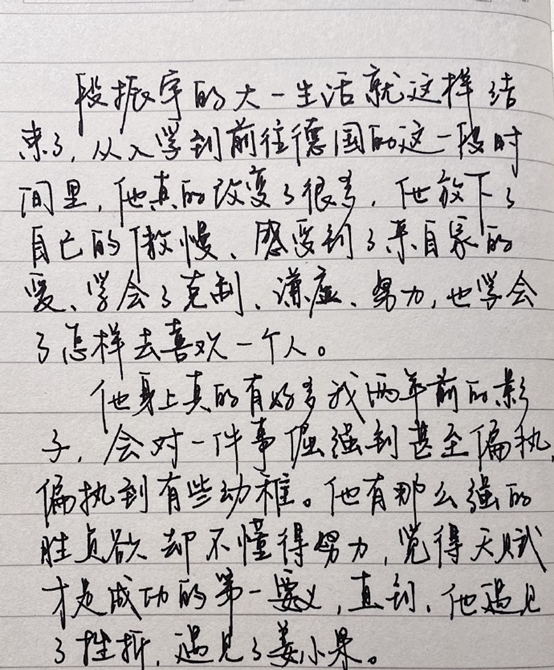 段振宇的大一生活就这样结
束了,从入学到前往德国的这一段时
间里,他真的改变了很多,他放下了
自己的傲慢、感受到了来自家的
爱、学会了克制、谦虚、努力,也学会
了怎样去喜欢一个人。
他身上真的有好多我两年前的影
子,会对一件事倔强到甚至偏执,
偏执到有些幼稚。他有那么强的
胜负欲却不懂得努力,觉得天赋
才是成功的第一要义,直到,他遇见
了挫折,遇见了姜小果。